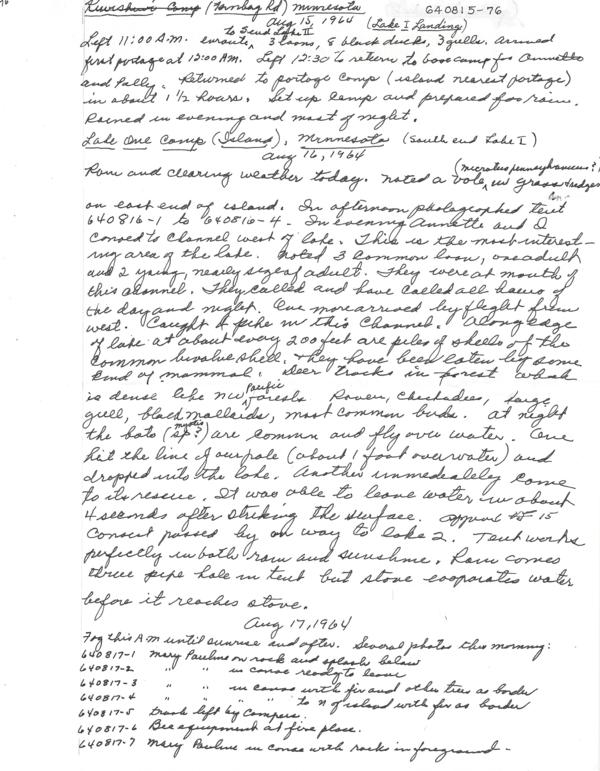 Camp (Fernberg Rd) Minnesota
Aug 15, 1964 (Lake I Landing) 640815-76
to Lake II
Left 11:00 A.M. enroute, 3 loons, 8 black ducks, 3 gulls. arrived
first portage at 12:00 AM. Left 12:30 to return to base camp for Annette
and Polly. Returned to portage camp (island nearest portage)
in about 1 1/2 hours. Set up camp and prepared for rain.
Rained in evening and most of night.
Lake One Camp (Island), Minnesota (South end Lake I)
Aug 16, 1964
(microtus pennsylvanicus?)
Rain and clearing weather today. noted a vole, in grass & sedges
on east end of island. In afternoon photographed tent
640816-1 to 640816-4. In evening Annette and I
canoed to channel west of lake. This is the most interest-
ing area of the lake. noted 3 common loon, one adult
and 2 young, nearly size of adult. They were at mouth of
this channel. They called and have called all hours of
the day and night. One more arrived by flight from
west. Caught pike in this channel. Along edge
of lake at about every 200 feet are piles of shells of the
common bivalve shell. They have been eaten by some
kind of mammal. Deer tracks in forest which
is dense like NW Pacific forests. Raven, chickadees, large
gull, black mallards, most common birds. At night
the bats (myotis sp?) are common and fly over water. One
hit the line of our pole (about 1 foot over water) and
dropped into the lake. Another immediately came
to its rescue. It was able to leave water in about
4 seconds after striking the surface. 15
Canoes passed by on way to lake 2. Tent works
perfectly in both rain and sunshine. Rain comes
thru pipe hole in tent but stove evaporates water
before it reaches stove.
Aug 17, 1964
Fog this A M until sunrise and after. Several photos this morning:
640817-1 Mary Pauline on rock and splash below
640817-2 " " in canoe ready to leave
640817-3 " " in canoe with fir and other trees as border
640817-4 " " to N of island with fir as border
640817-5 trash left by campers.
640817-6 Bee equipment at fire place.
640817-7 Mary Pauline in canoe with rocks in foreground -